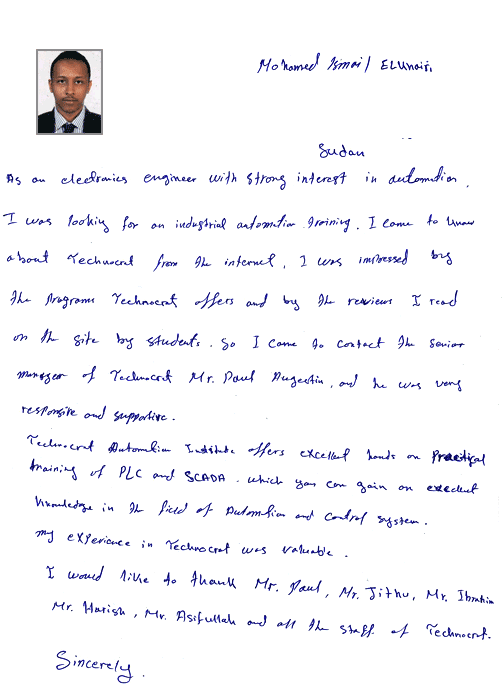 Mohamed Ismail ELUnaisi
Sudan
As an electronics engineer with strong interest in automation,
I was looking for an industrial automation training. I came to know
about Technocrat from the internet, I was impressed by
the programs Technocrat offers and by the reviews I read
on the site by students. So I came to contact the senior
manager of Technocrat Mr. Paul Augestin, and he was very
responsive and supportive.
Technocrat Automation Institute offers excellent hands on practical
training of PLC and SCADA. which you can gain an excellent
knowledge in the field of Automation and control system.
my experience in Technocrat was valuable.
I would like to thank Mr. Paul, Mr. Jithu, Mr. Ibrahim
Mr. Harish, Mr. Asifullah and all the staff of Technocrat.
Sincerely.